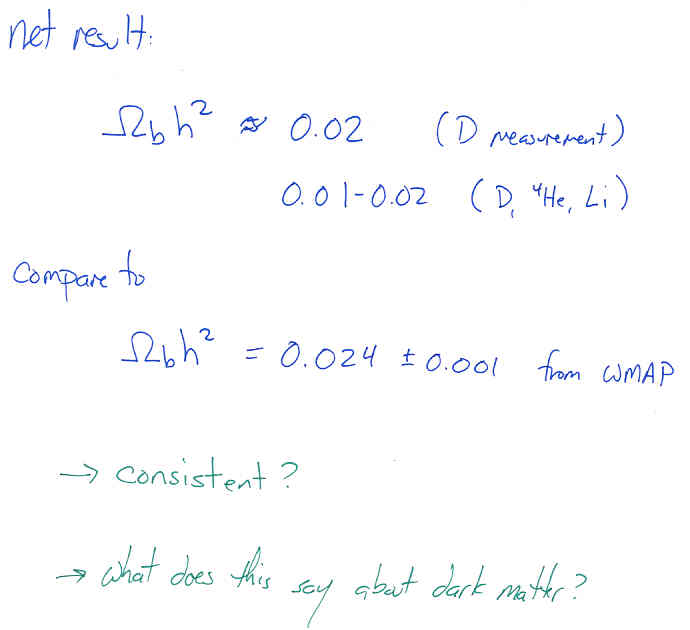 net result:
Ω_b h² ≈ 0.02 (D measurement)
0.01-0.02 (D, ⁴He, Li)
Compare to
Ω_b h² = 0.024 ± 0.001 from WMAP
→ consistent?
→ what does this say about dark matter?